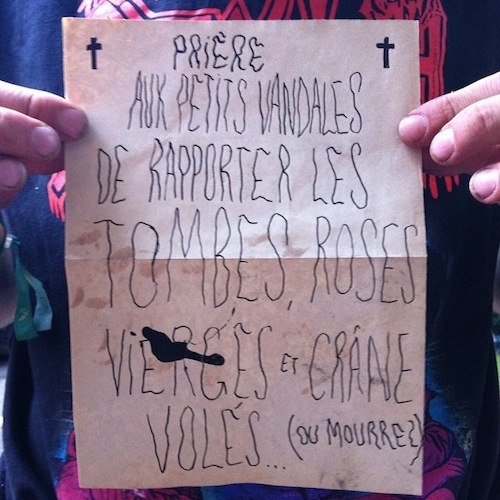 PRIÈRE
AUX PETITS VANDALES
DE RAPPORTER LES
TOMBES, ROSES
VIERGES ET CRÂNE
VOLÉS... (OU MOURREZ)